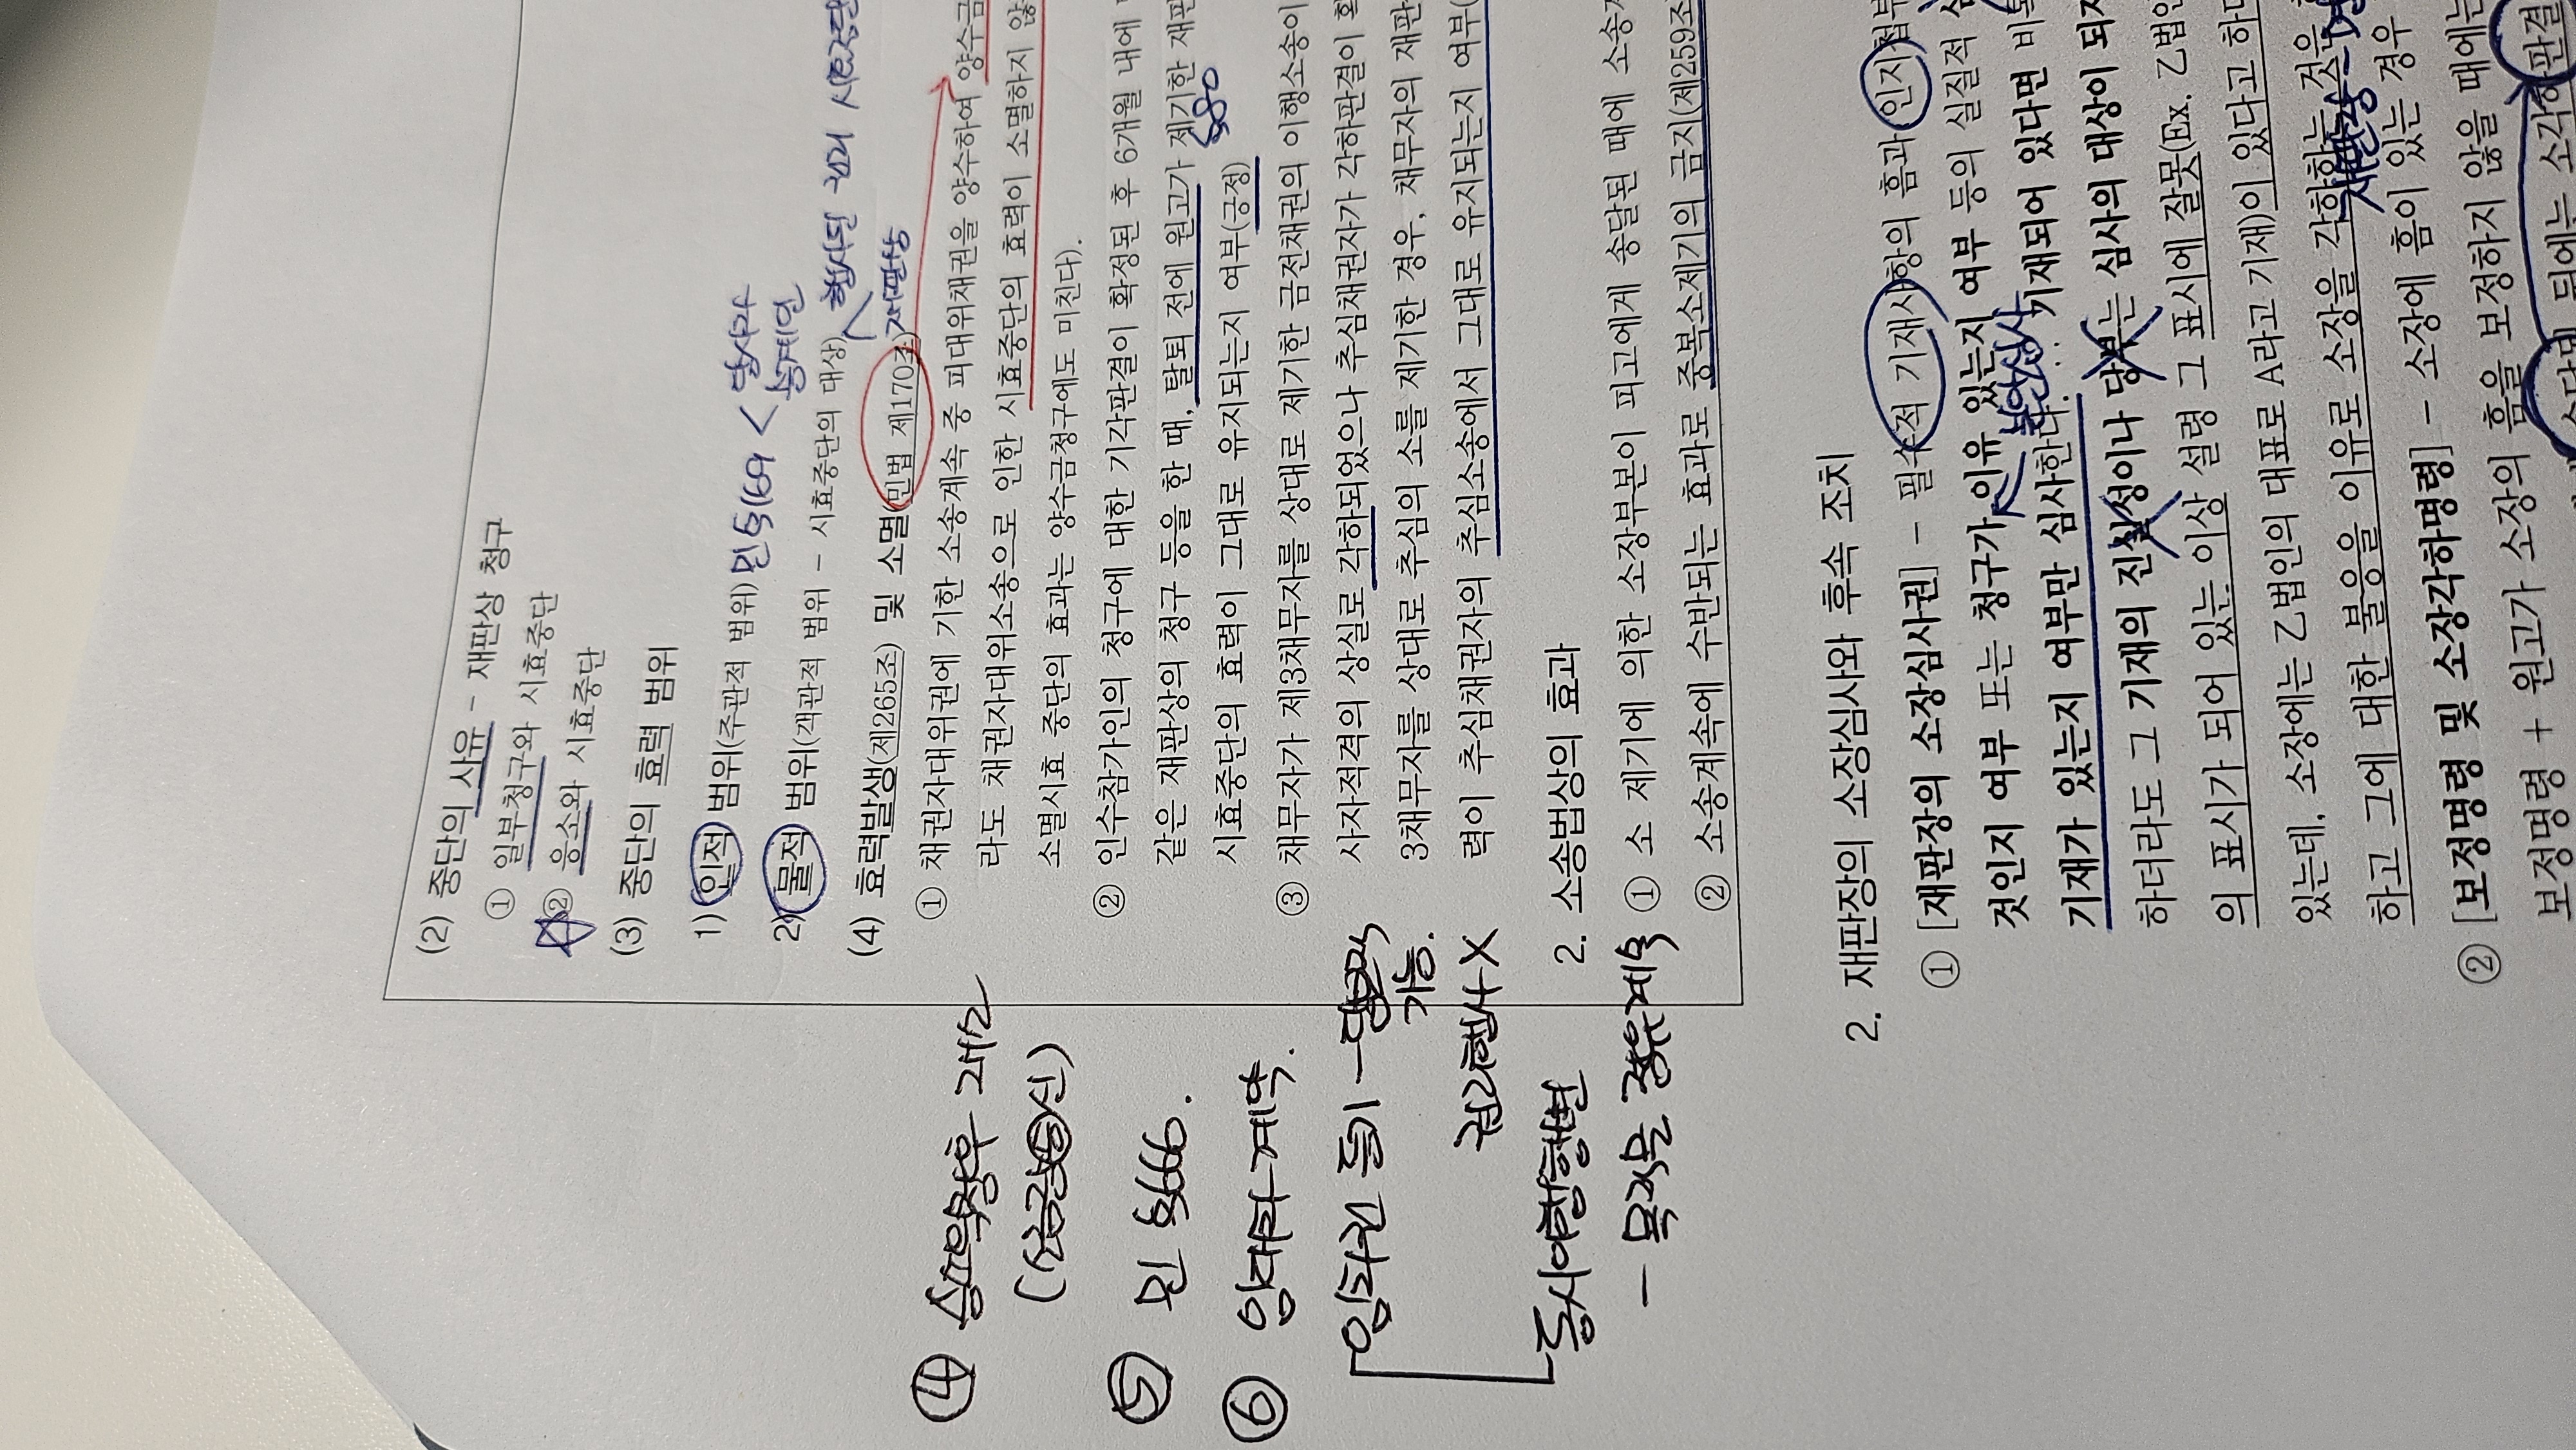 (2) 중단의 사유 - 재판상 청구
① 일부청구와 시효중단
② 응소와 시효중단
(3) 중단의 효력 범위
1) 인적 범위(주관적 범위) 민§169 < 당사자
승계인
2) 물적 범위(객관적 범위 - 시효중단의 대상) 행사된 권리 시효중단
(4) 효력발생(제265조) 및 소멸(민법 제170조) 재판상
① 채권자대위권에 기한 소송계속 중 피대위채권을 양수하여 양수금
라도 채권자대위소송으로 인한 시효중단의 효력이 소멸하지 않
소멸시효 중단의 효과는 양수금청구에도 미친다).
② 인수참가인의 청구에 대한 기각판결이 확정된 후 6개월 내에
같은 재판상의 청구 등을 한 때, 탈퇴 전에 원고가 제기한 재판
시효중단의 효력이 그대로 유지되는지 여부(긍정)
③ 채무자가 제3채무자를 상대로 제기한 금전채권의 이행소송이
사자적격의 상실로 각하되었으나 추심채권자가 각하판결이 확
3채무자를 상대로 추심의 소를 제기한 경우, 채무자의 재판
력이 추심채권자의 추심소송에서 그대로 유지되는지 여부(
2. 소송법상의 효과
① 소 제기에 의한 소장부본이 피고에게 송달된 때에 소송
② 소송계속에 수반되는 효과로 중복소제기의 금지(제259조
④ 승소확정후 재소
⑤ 민 §666.
⑥ 임대차계약.
임차권 등기 -
가능.
권리행사 X
동시이행항변
- 목적물 점유계속
2. 재판장의 소장심사와 후속 조치
① [재판장의 소장심사권] - 필수적 기재사항의 흠과 인지첩부
것인지 여부 또는 청구가 이유 있는지 여부 등의 실질적 심
본안심사
기재가 있는지 여부만 심사한다. 기재되어 있다면 비록
하더라도 그 기재의 진실성이나 당부는 심사의 대상이 되지
의 표시가 되어 있는 이상 설령 그 표시에 잘못(Ex. 乙법인
있는데, 소장에는 乙법인의 대표로 A라고 기재)이 있다고 하더
하고 그에 대한 불응을 이유로 소장을 각하하는 것은
② [보정명령 및 소장각하명령] - 소장에 흠이 있는 경우
보정명령 + 원고가 소장의 흠을 보정하지 않을 때에는
뒤에는 소각하판결